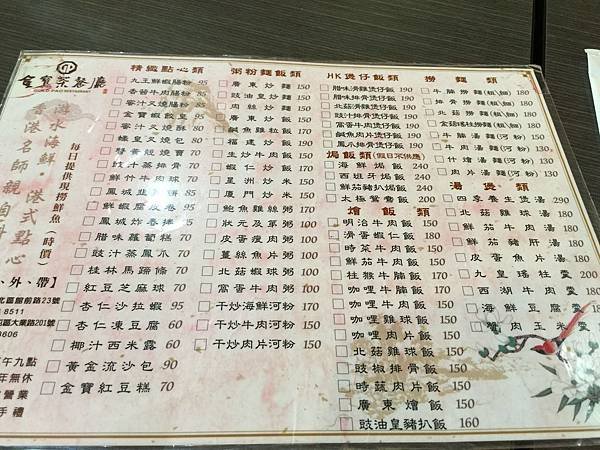 金寶茶餐廳
GOLD BAO RESTAURANT
港式點心
游水海鮮
香港名師親自料
每日提供現撈鮮魚(時價)
、外、帶
北區館前路23號
8511
區大業路201號
3606
午九點
年無休
營業
手禮
精緻點心類
九王鮮蝦腸粉 95
香茜牛肉腸粉 95
蜜汁叉燒腸粉 95
金寶蝦餃皇 95
蜜汁叉燒酥 80
蠔皇叉燒包 80
蟹黃燒賣 80
豉汁蒸排骨 70
鮮竹牛肉球 70
鮮蝦腐皮卷 95
鳳城炸春捲 95
腊味蘿蔔糕 70
豉汁蒸鳳爪 70
桂林馬蹄條 70
紅豆芝麻球 70
杏仁沙拉蝦 95
杏仁凍豆腐 60
椰汁西米露 60
黃金流沙包 90
金寶紅豆糕 70
粥粉麵飯類
廣東炒麵 150
豉油皇炒麵 150
肉絲炒麵 150
廣東炒飯 150
鹹魚雞粒飯 150
福建炒飯 190
生炒牛肉飯 150
蝦仁炒飯 150
星洲炒米 150
廈門炒米 150
鮑魚雞絲粥 170
狀元及第粥 100
皮蛋瘦肉粥 100
薑絲魚片粥 100
北菇蝦球粥 100
窩蛋牛肉粥 100
干炒海鮮河粉 170
干炒牛肉河粉 150
干炒肉片河粉 150
HK煲仔飯類
腊味滑雞煲仔飯 190
腊味排骨煲仔飯 190
北菇滑雞煲仔飯 190
豉汁排骨煲仔飯 190
鹹魚肉片煲仔飯 190
鳳爪排骨煲仔飯 190
焗飯類(假日不供應)
海鮮焗飯 240
西班牙焗飯 240
鮮茄豬扒飯 240
太極鴛鴦飯 200
燴飯類
明治牛肉飯 150
滑蛋蝦仁飯 180
時菜牛肉飯 150
窩蛋牛肉飯 150
柱猴牛腩飯 170
咖哩牛腩飯 170
咖哩牛肉飯 150
咖哩雞球飯 150
咖哩肉片飯 150
北菇雞球飯 150
豉椒排骨飯 150
時蔬肉片飯 150
廣東燴飯 150
豉油皇豬扒飯 160
撈麵類
牛腩撈麵(粗\細麵) 180
排骨撈麵(粗\細麵) 160
北菇撈麵(粗\細麵) 160
金銀豬柱撈麵(粗\細麵) 160
牛腩湯麵(河粉) 180
牛肉湯麵(河粉) 130
什燴湯麵(河粉) 160
魚片湯麵(河粉) 130
湯煲類
四季養生煲湯 250
北菇雞球湯 180
鮮茄牛肉湯 180
鮮茄豬肝湯 180
皮蛋魚片湯 180
九皇瑤柱羹 200
西湖牛肉羹 180
海鮮豆腐羹 200
蟹肉玉米羹 200